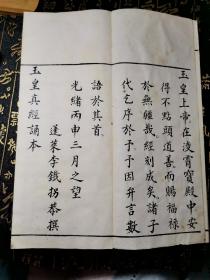 玉皇上帝在淩霄寶殿中安
得不點頭道善而賜福祿
於無疆哉經刻成矣諸子
代乞序於予予因弁言數
語於其首
光緒丙申三月之望
蓬萊李鐵拐恭撰
玉皇真經誦本